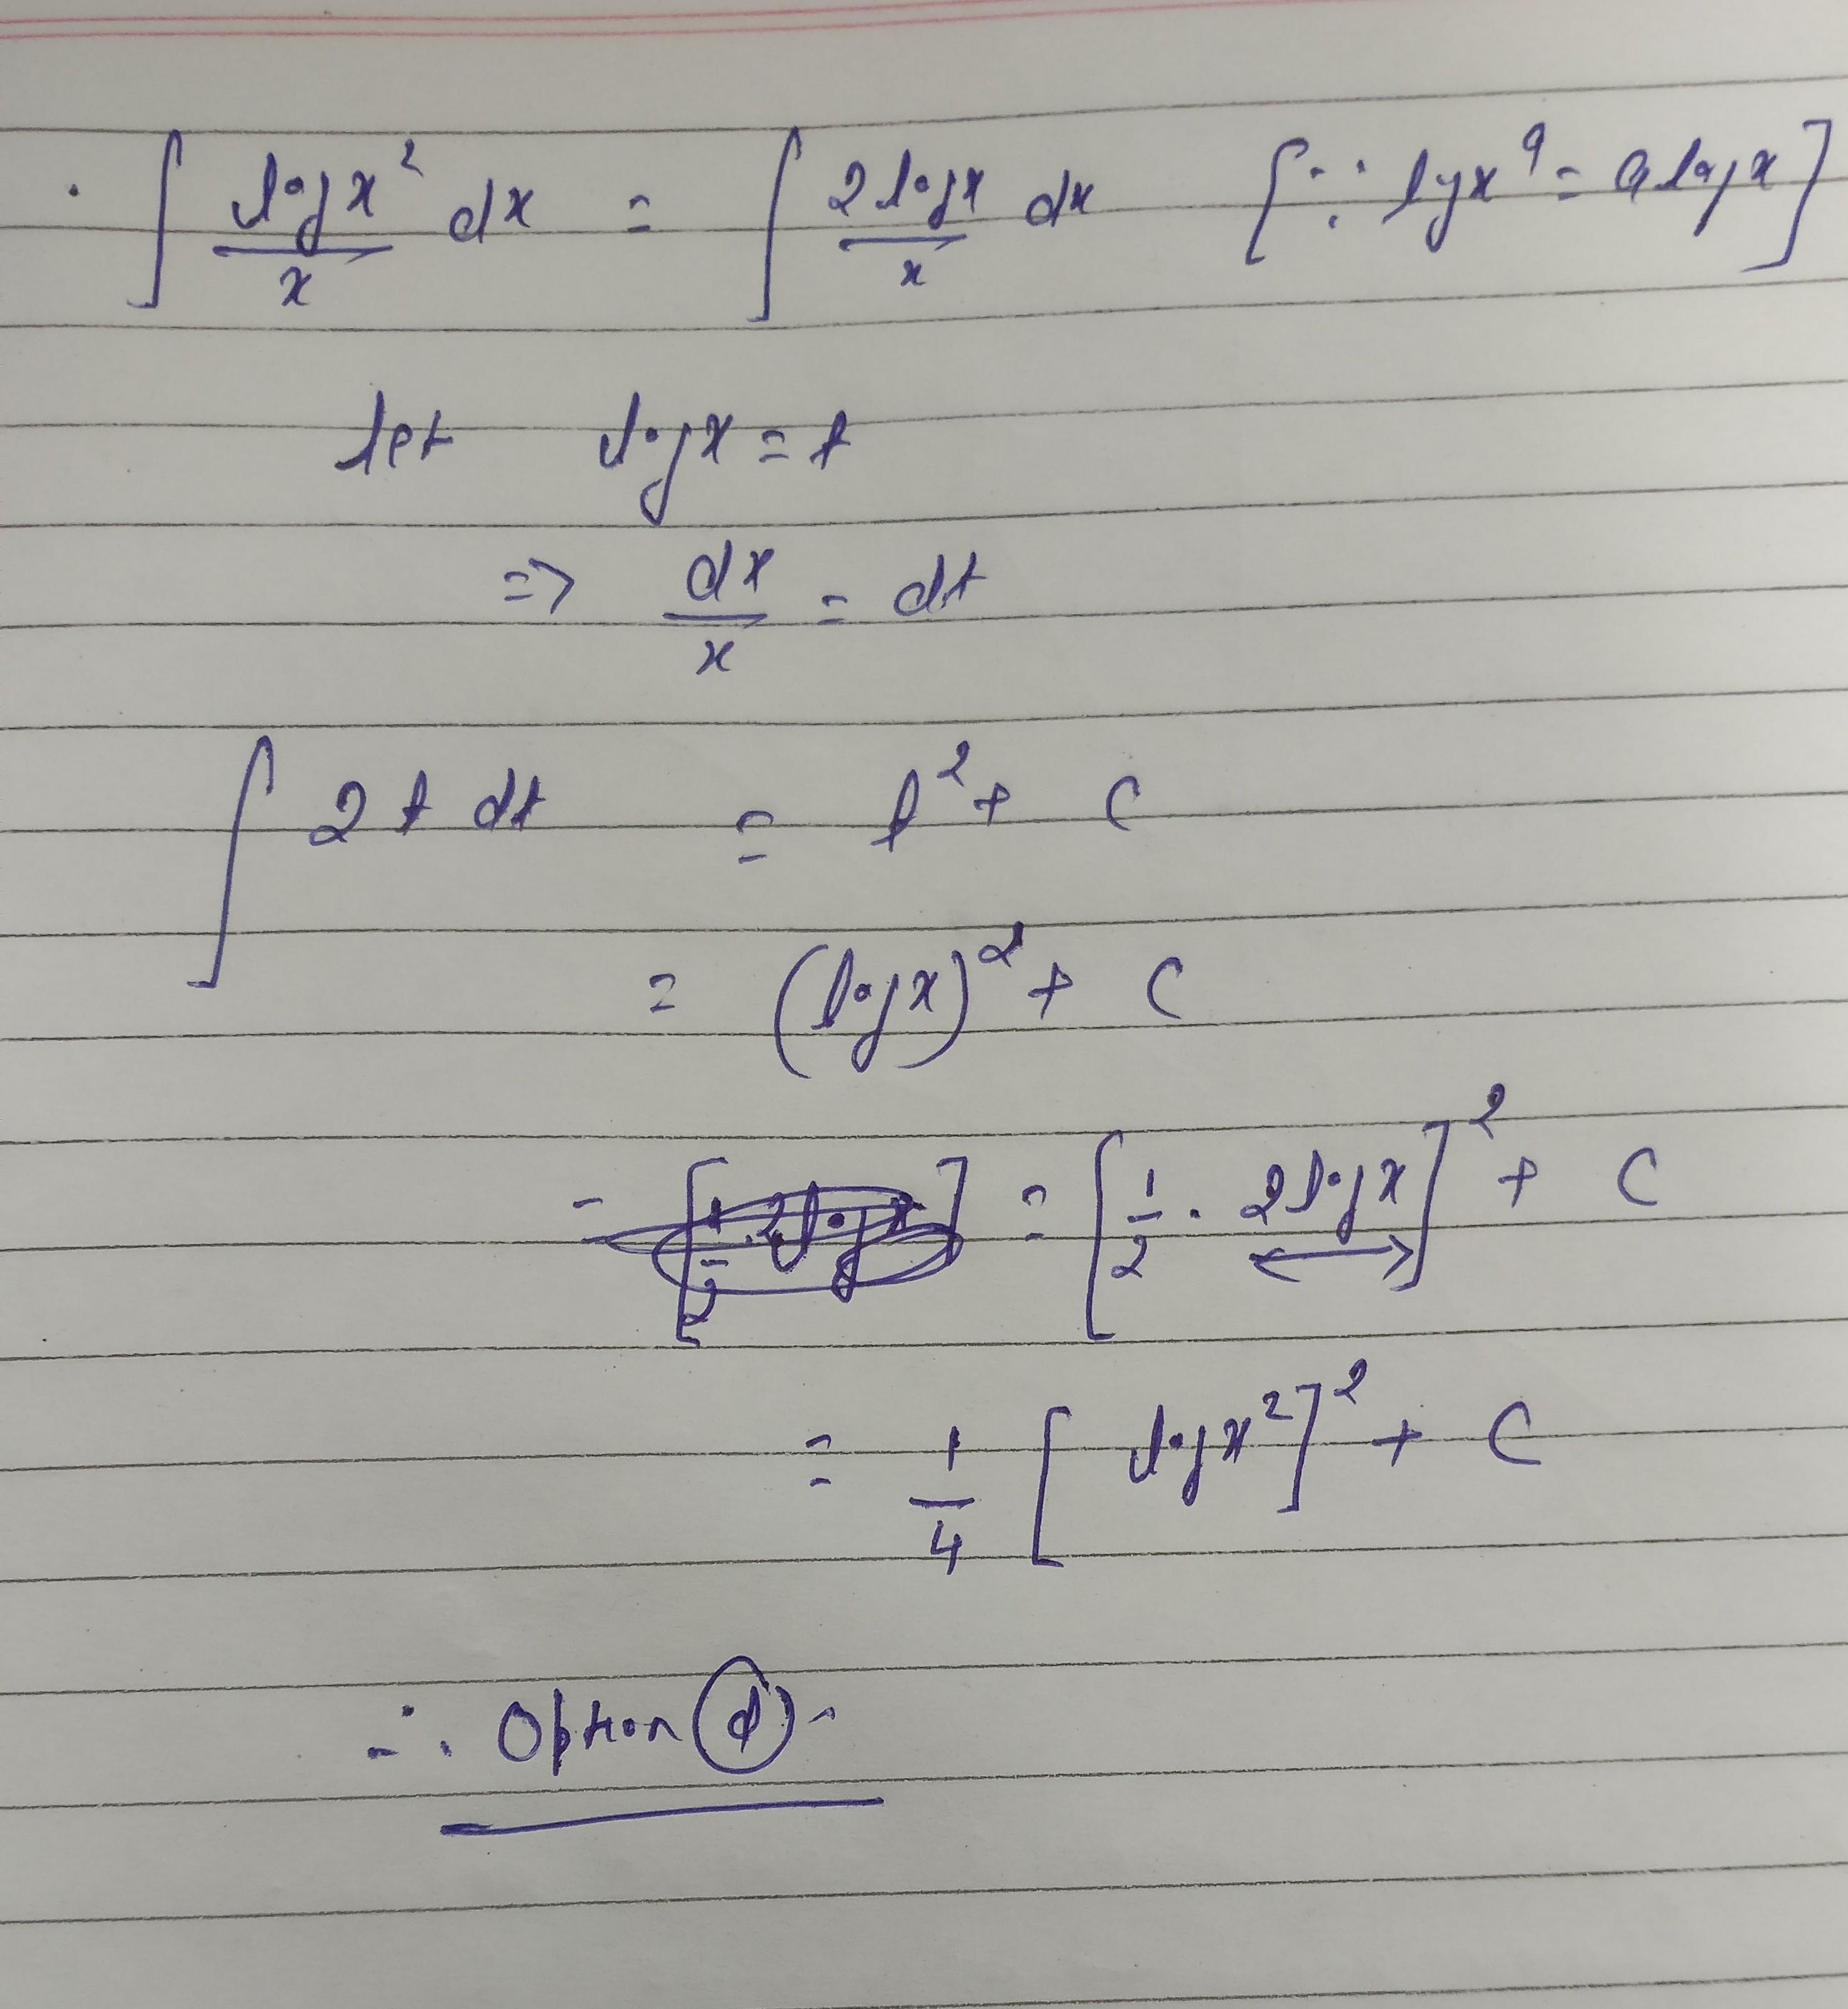 . ∫ log x² / x dx = ∫ 2 log x / x dx [∵ log xᵃ = a log x]
let log x = t
=> dx / x = dt
∫ 2 t dt = t² + C
= (log x)² + C
= [1/2 . 2 log x]² + C
= 1/4 [log x²]² + C
∴ Option (d)